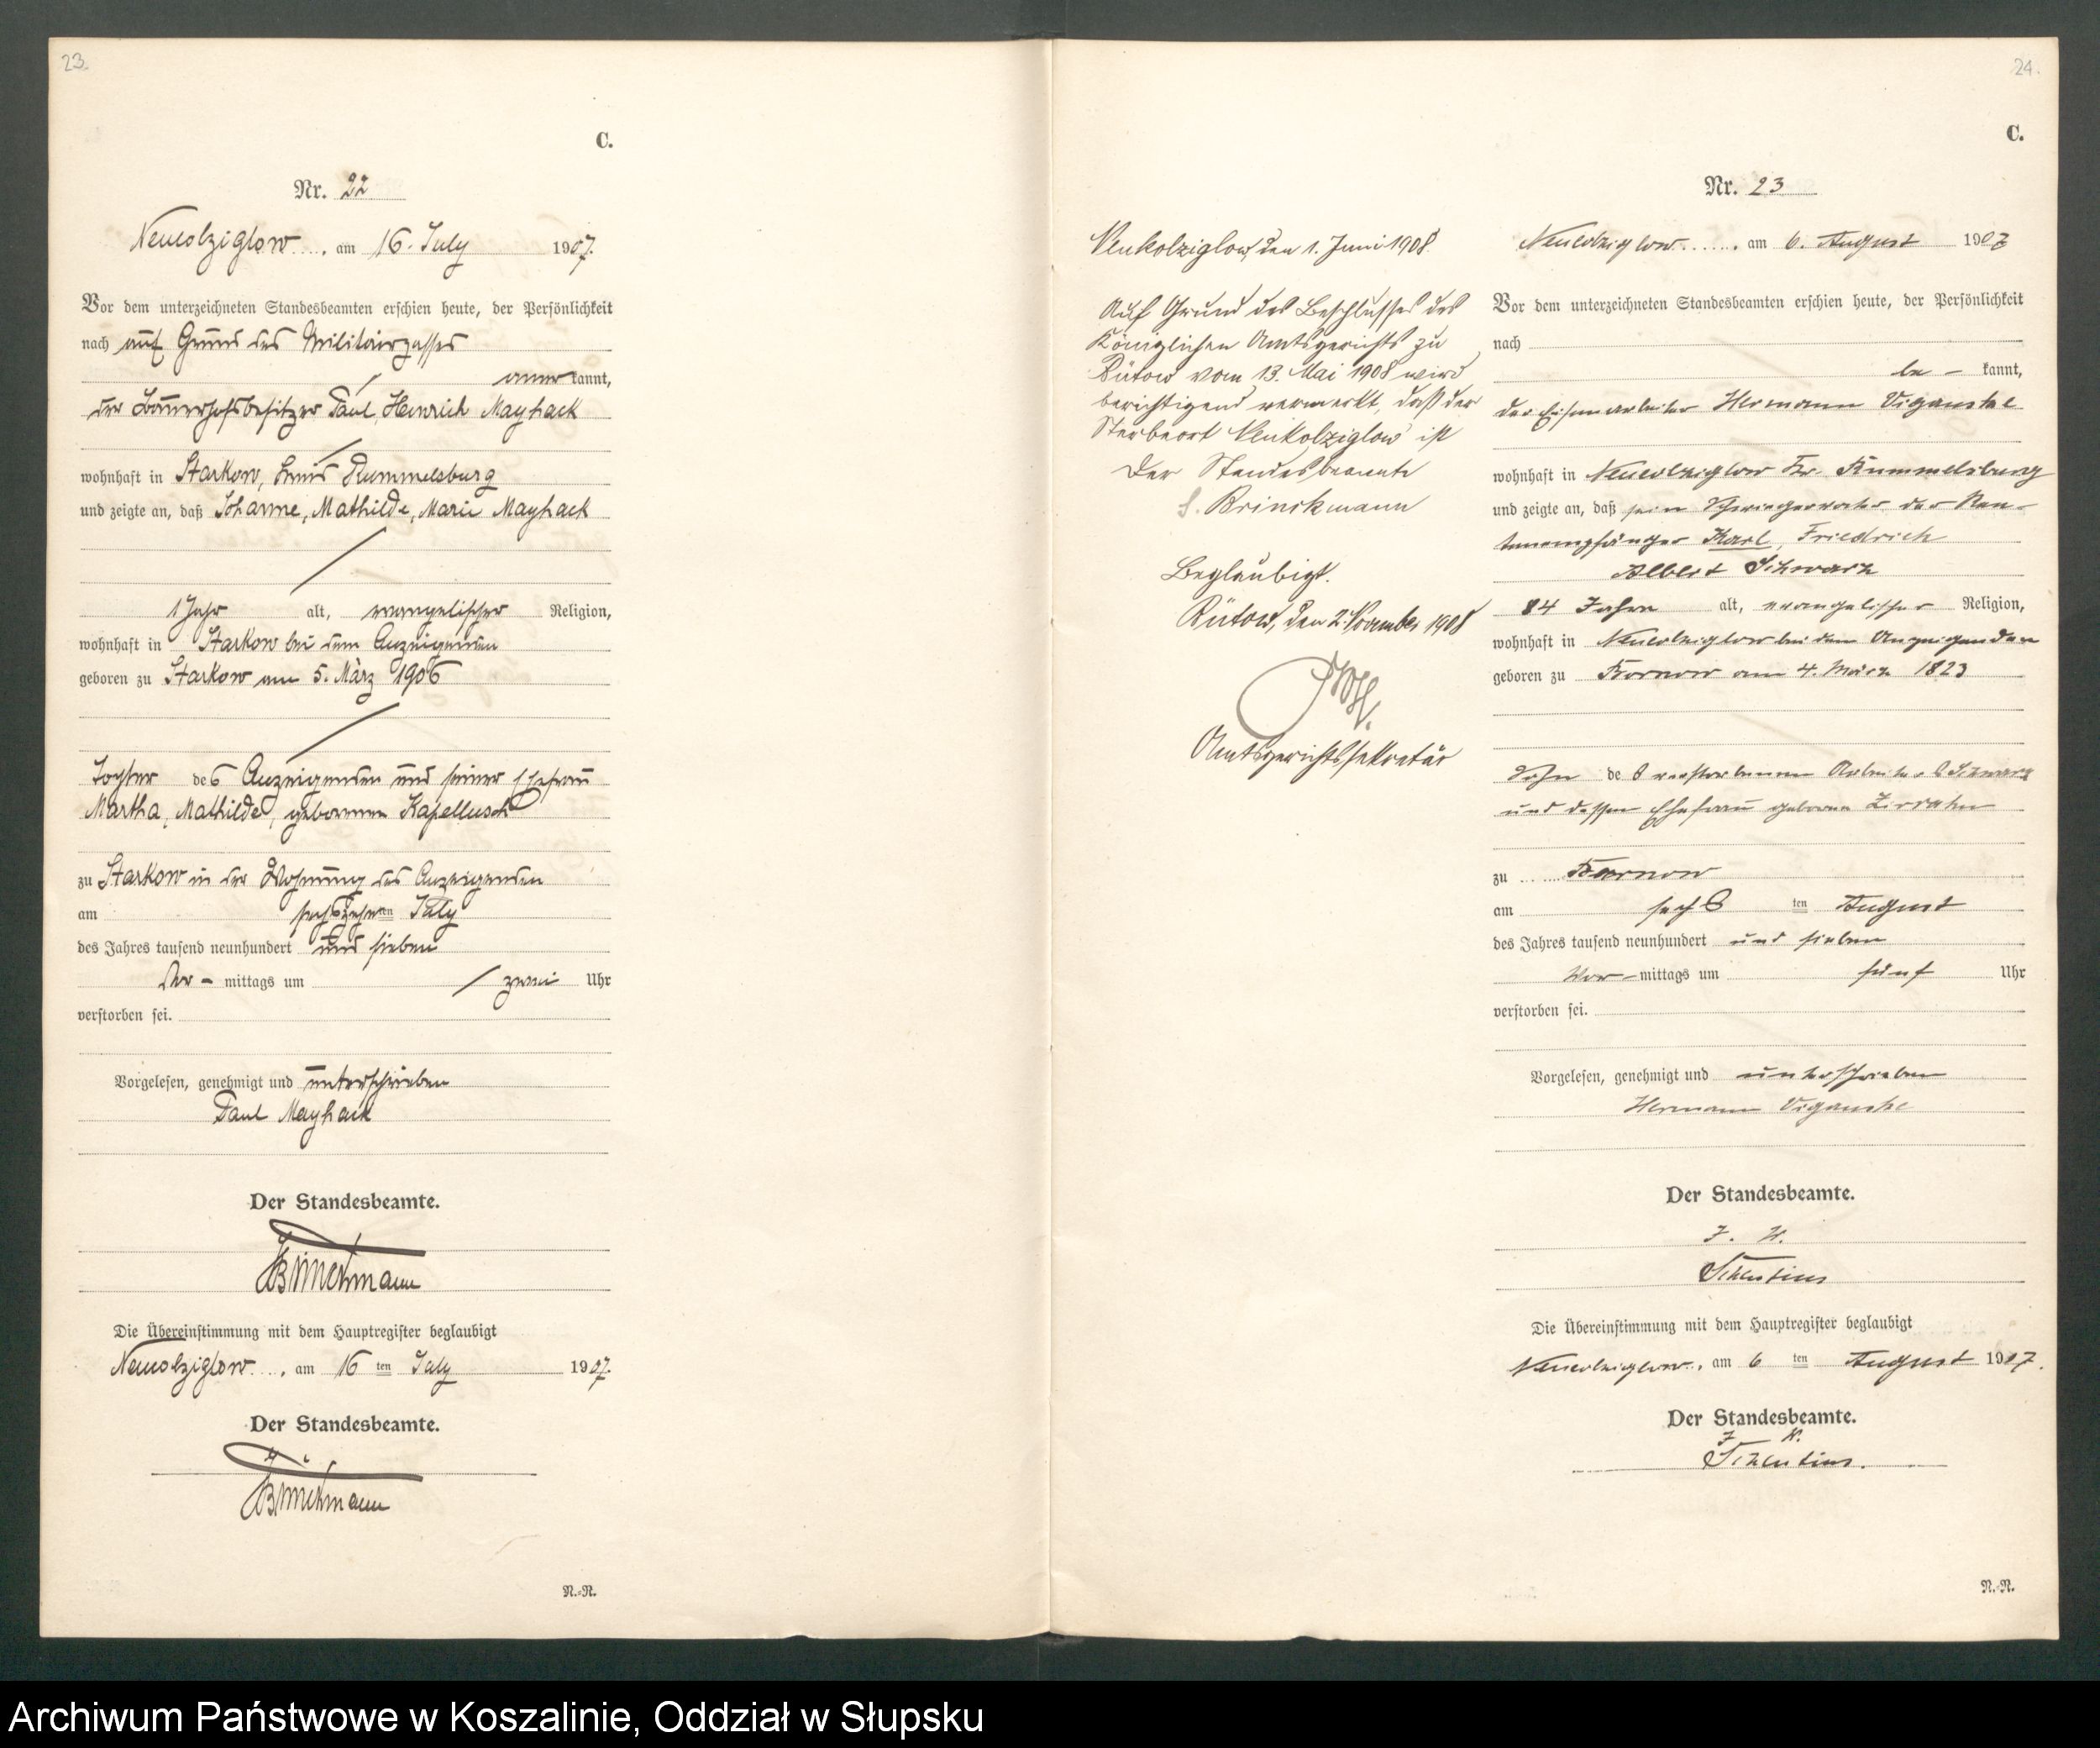 23.
C.
Nr. 22
Neukolziglow, am 16. July 1907.
Vor dem unterzeichneten Standesbeamten erschien heute, der Persönlichkeit
nach auf Grund des Militairpasses
anerkannt,
der Bauerhofsbesitzer Paul, Heinrich Mayhack
wohnhaft in Starkow, Kreis Rummelsburg
und zeigte an, daß Johanne, Mathilde, Marie Mayhack
1 Jahr alt, evangelischer Religion,
wohnhaft in Starkow bei dem Anzeigenden
geboren zu Starkow am 5. März 1906
Tochter des Anzeigenden und seiner Ehefrau
Martha, Mathilde, geborenen Kapellusch
zu Starkow in der Wohnung des Anzeigenden
am sechszehnten July
des Jahres tausend neunhundert und sieben
Vor-mittags um zwei Uhr
verstorben sei.
Vorgelesen, genehmigt und unterschrieben
Paul Mayhack
Der Standesbeamte.
Brinckmann
Die Übereinstimmung mit dem Hauptregister beglaubigt
Neukolziglow, am 16 ten July 1907.
Der Standesbeamte.
Brinckmann
N.-N.
24.
C.
Nr. 23
Neukolziglow, den 1. Juni 1908.
Auf Grund des Beschlusses des
Königlichen Amtsgerichts zu
Bütow vom 13. Mai 1908 wird
berichtigend vermerkt, daß der
Sterbeort Neukolziglow ist
Der Standesbeamte
Brinckmann
Beglaubigt.
Bütow, den 2. November 1908
Amtsgerichtssekretär
Neukolziglow, am 6. August 1907
Vor dem unterzeichneten Standesbeamten erschien heute, der Persönlichkeit
nach
be-kannt,
der Eisenarbeiter Hermann Viganske
wohnhaft in Neukolziglow Kr. Rummelsburg
und zeigte an, daß sein Schwiegervater der Ren-
tenempfänger Karl, Friedrich
Albert Schwarz
84 Jahre alt, evangelischer Religion,
wohnhaft in Neukolziglow bei dem Anzeigenden
geboren zu Bornow am 4. März 1823
Sohn des verstorbenen Arbeiters Schwarz
und dessen Ehefrau geborene Zirrahn
zu Bornow
am sechsten August
des Jahres tausend neunhundert und sieben
Vor-mittags um fünf Uhr
verstorben sei.
Vorgelesen, genehmigt und unterschrieben
Hermann Viganske
Der Standesbeamte.
J. V.
Schentins
Die Übereinstimmung mit dem Hauptregister beglaubigt
Neukolziglow, am 6 ten August 1907.
Der Standesbeamte.
J. V.
Schentins.
N.-N.
Archiwum Państwowe w Koszalinie, Oddział w Słupsku